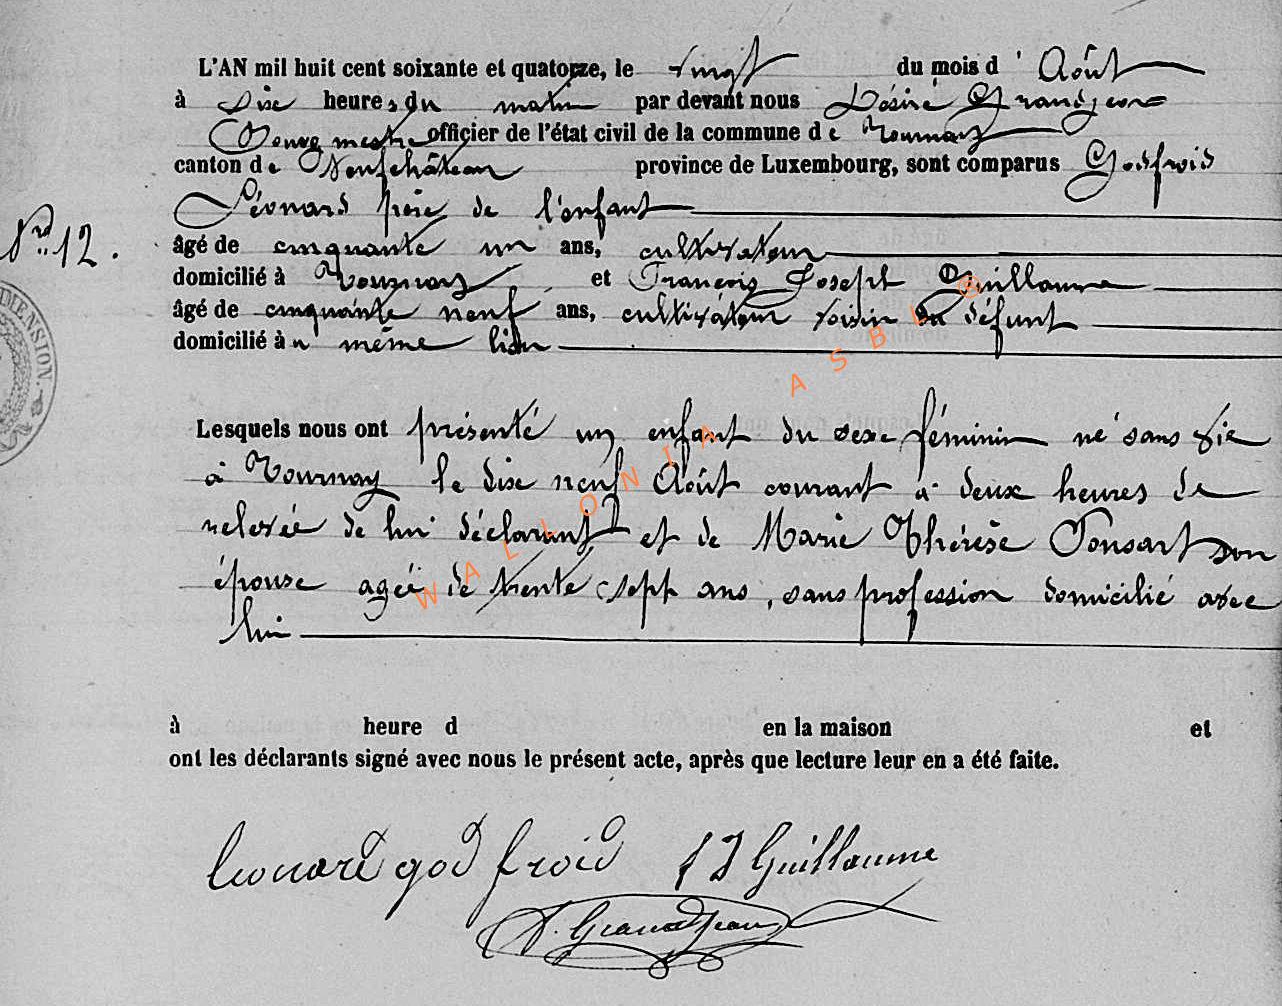 L'AN mil huit cent soixante et quatorze, le vingt du mois d'Août
à dix heures du matin par devant nous Désiré Grandjean
Bourgmestre officier de l'état civil de la commune de Tournay
canton de Neufchâteau province de Luxembourg, sont comparus Godfroid
Léonard père de l'enfant
N° 12.
âgé de cinquante un ans, cultivateur
domicilié à Tournay et François Joseph Guillaume
âgé de cinquante neuf ans, cultivateur voisin du défunt
domicilié au même lieu
Lesquels nous ont présenté un enfant du sexe féminin né sans vie
à Tournay le dix neuf Août courant à deux heures de
relevée de lui déclarant et de Marie Thérèse Ponsart son
épouse agée de trente sept ans, sans profession domicilié avec
lui
à heure d en la maison et
ont les déclarants signé avec nous le présent acte, après que lecture leur en a été faite.
Leonard godfroid f J Guillaume
D. Grandjean
WALLONIA ASBL ®
MENSION.